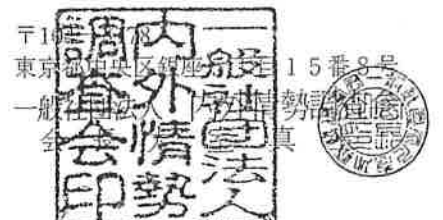 〒10 78
東京都中央区銀座 15番8号
一般社団法人 内外情勢調査会
会 真
一般社団法人
内外情勢
調査会印